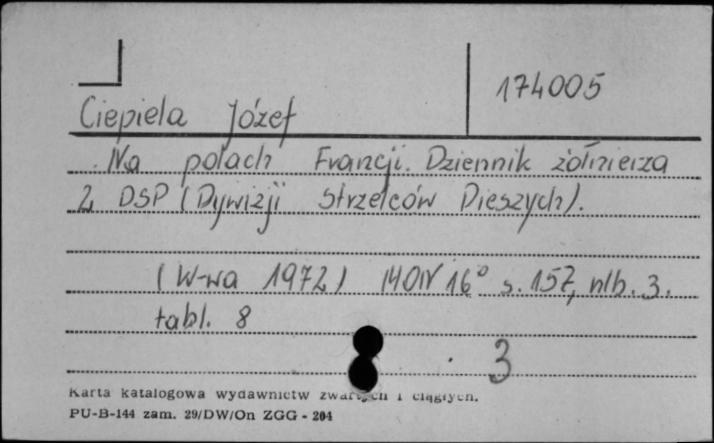 174005
Ciepiela Józef
Na polach Francji. Dziennik żołnierza
2 DSP (Dywizji Strzelców Pieszych).
(W-wa 1972) MON 16° s. 157, nlb. 3.
tabl. 8
3
Karta katalogowa wydawnictw zwartych i ciągłych.
PU-B-144 zam. 29/DW/On ZGG - 204